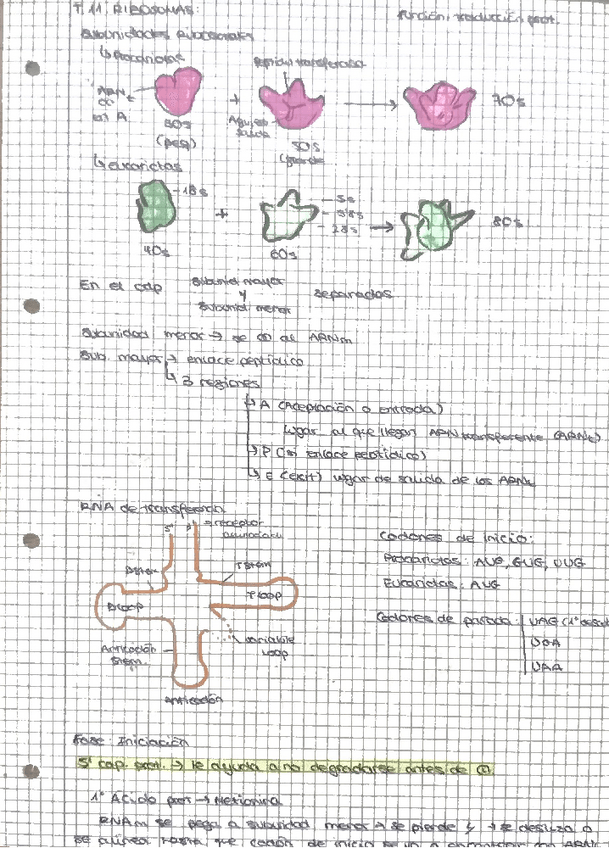 T.11: RIBOSOMAS:
función: traducción prot.
Subunidades Ribosomales
↳ Procariotas
Peptidil transferasa
ARNt
en
sit A.
+
→
70s
Agujero
salida
30s
(peq)
50s
(grande
↳ eucariotas
18s
+
5s
5'8s
28s
→
80s
40s
60s
En el cdp
Subunid mayor
y
Subunid menor
separadas
Subunidad menor → se al ARNm
Sub. mayor → enlace peptídico
↳ 3 regiones
↳ A (Aceptación o entrada)
lugar al que llegan ARN transferente (ARNt)
↳ P (Sn enlace peptídico)
↳ E (exit) lugar de salida de los ARNt
RNA de transferencia
5'
3'
aceptor
D stem
T stem
D loop
T loop
Anticodón
Stem
variable
Loop
Anticodón
Codones de inicio:
Procariotas: AUG, GUG, UUG
Eucariotas: AUG
Codones de parada:
UAG (1º
UGA
UAA
Fase: Iniciación
5' cap. prot. → le ayuda a no degradarse antes de
1º Ácido prot → Metionina
RNAm se pega a subunidad menor → se pierde y → se desliza o
se alinea hasta que codón de inicio